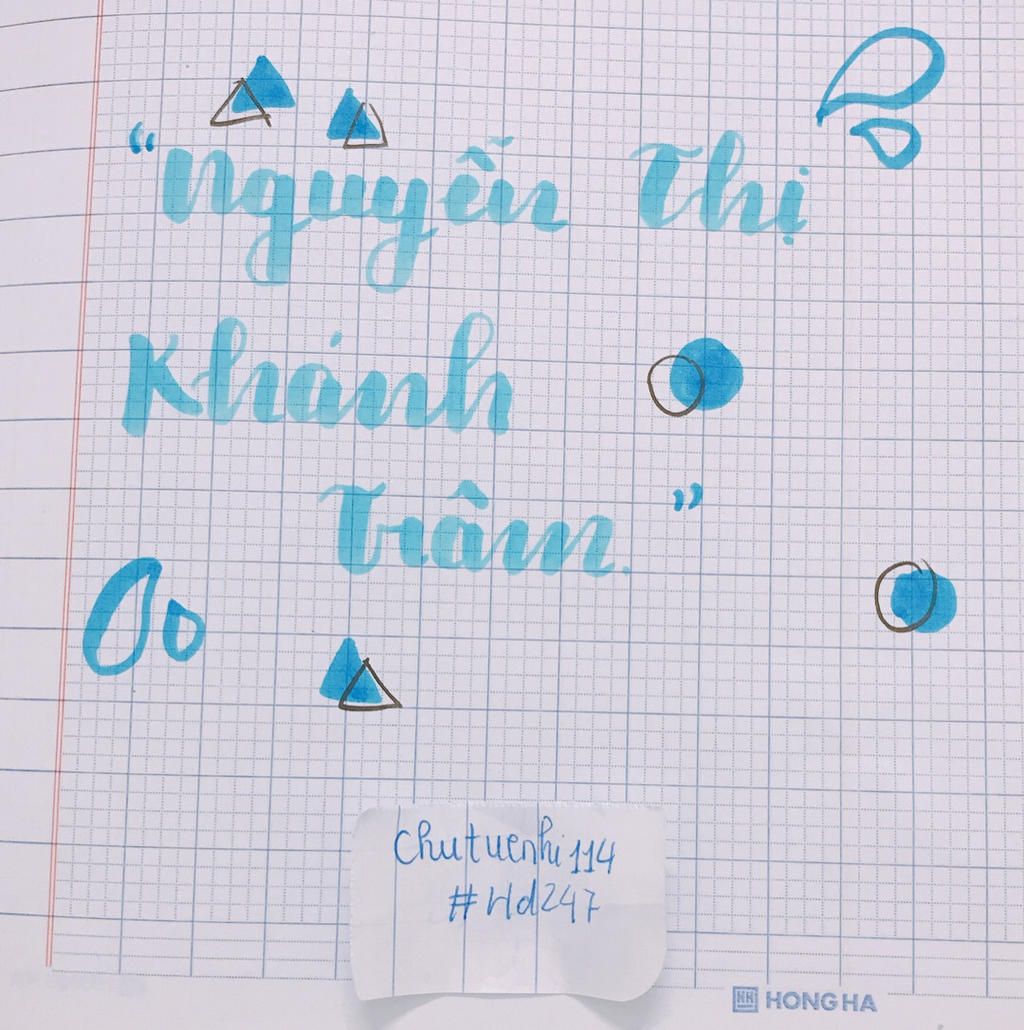 “Nguyễn Thị
Khánh
Trâm.”
chutuenhi114
#Hd247
HONG HA